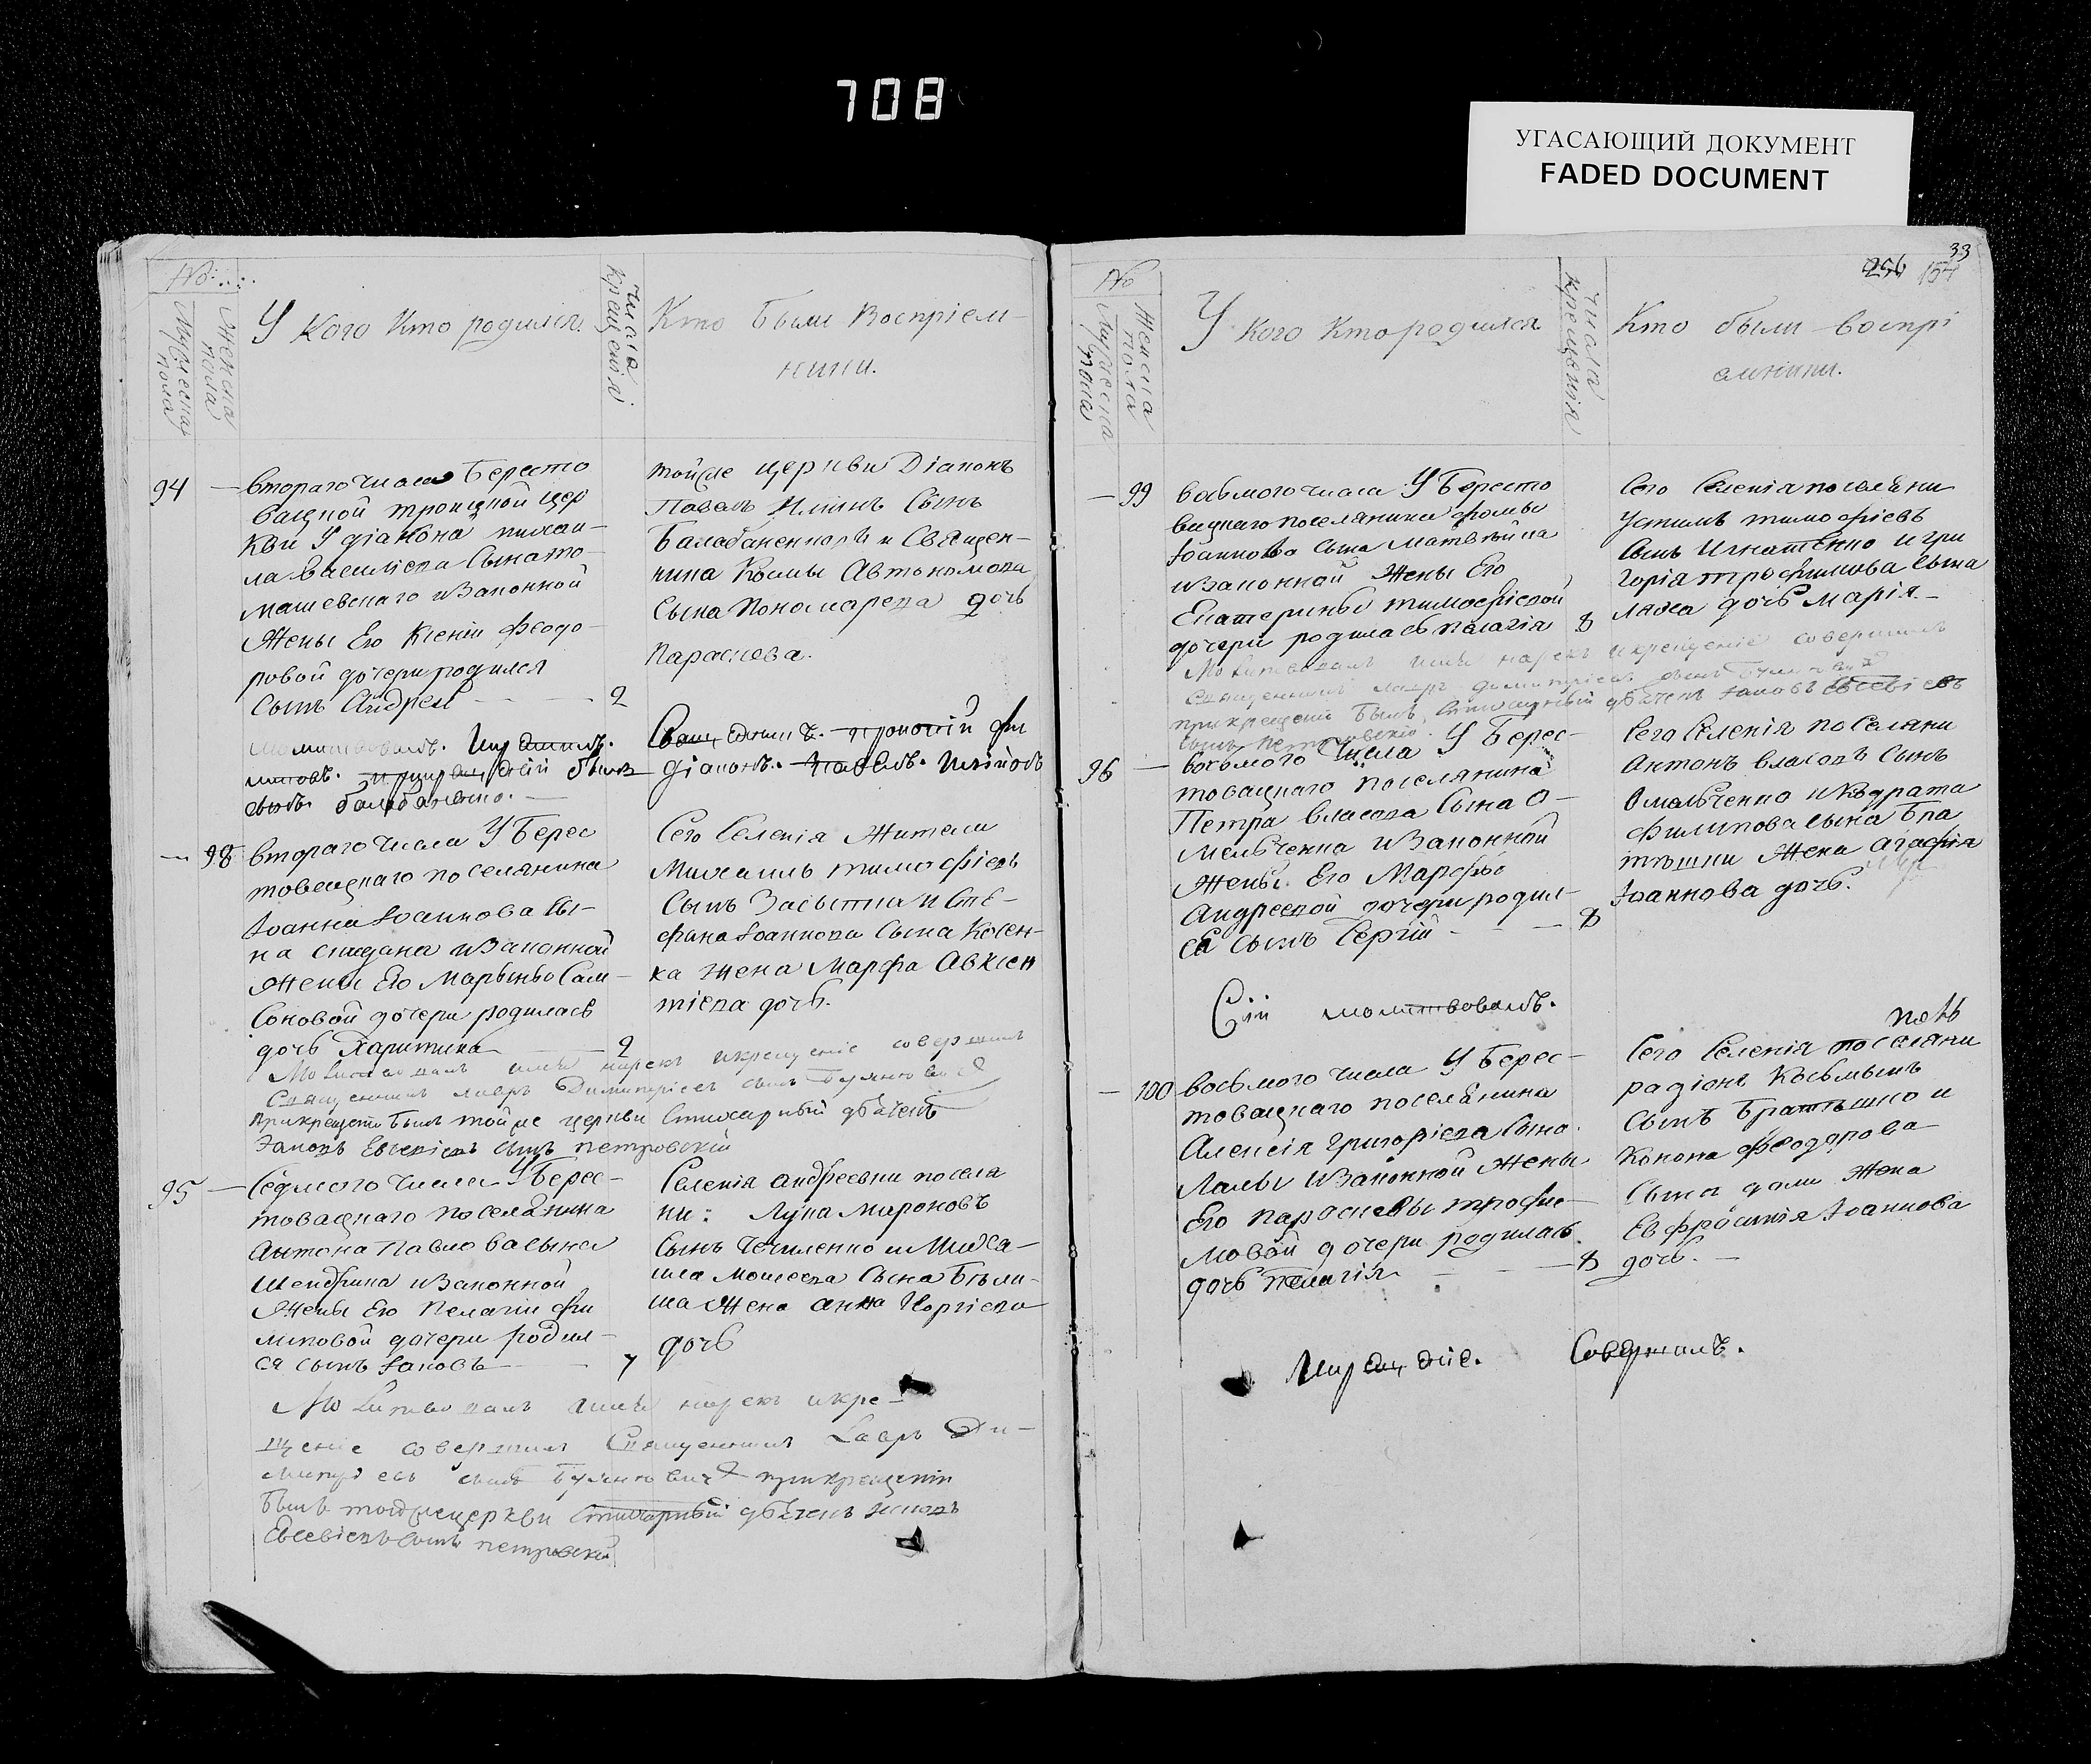 708
УГАСАЮЩИЙ ДОКУМЕНТ
FADED DOCUMENT
№
Мужеска пола
Женска пола
У кого кто родился.
Числа крещенія
Кто были воспріем-
ники.
94
втораго числа Бересто
вацкой троицкой цер
кви У діакона михаи-
ла василіева сына то-
машевскаго изаконной
жены Его Ксеніи феодо-
ровой дочери родился
сынъ Андрей
2
тойже церкви Діаконъ
Павелъ Илiинъ Сынъ
Балабаненковъ и Священ-
ника Космы Автономова
Сына Пономарева дочь
Параскева.
молитвовалъ.
діаконъ. Павелъ.
98
втораго числа У Берес
товацкаго поселянина
Іоанна Іоаннова Сы-
на изаконной
жены Его Марыны Сам-
соновой дочери родилась
дочь Харитина
2
Сего Селенія жители
Михаилъ тимофіевъ
Сынъ и Сте-
фана Іоаннова Сына Косен-
ка жена Марфа Авксен
тіева дочь.
Молитвовалъ имя нарекъ икрещеніе совершилъ
Священникъ лавръ Димитріевъ сынъ
прикрещеніи былъ тойже церкви Стихарный дьячекъ
Іаковъ Евсевіевъ сынъ петровскій
95
Седмого числа У Берес-
товацкаго поселянина
Антона Павлова сына
изаконной
жены Его Пелагіи фи
липовой дочери родил-
ся сынъ Іаковъ
7
Селенія Андреевки поселя
не: Лука Мироновъ
Сынъ и
Моисеева Сына
жена анна Георгіева
дочь
Молитвовалъ имя нарекъ икре-
щеніе совершилъ Священникъ Лавръ Ди-
митріевъ сынъ прикрещеніи
былъ тойже церкви Стихарный дьячекъ Іаковъ
Евсевіевъ Сынъ петровскій
33
256 154
№
Мужеска пола
Женска пола
У кого кто родился
Числа крещенія
Кто были воспрі
емники.
99
восьмого числа У Бересто
вацкаго поселянина фомы
Іоаннова сына
изаконной жены Его
Екатерины тимофіевой
дочери родилась пелагія
8
Сего Селенія поселяни
Устимъ тимофіевъ
Сынъ Игнатенко и гри
горія трофимова сына
дочь марія.
Молитвовалъ имя нарекъ икрещеніе совершилъ
Священникъ лавръ димитріевъ сынъ
прикрещеніи былъ Стихарный дьячекъ Іаковъ Евсевіевъ
сынъ петровскій
96
восьмого числа У Берес-
товацкаго поселянина
Петра власова Сына О-
мельченка изаконной
жены Его Марфы
Андреевой дочери родил-
ся сынъ Сергій
8
Сего Селенія поселяни
Антонъ власовъ Сынъ
Омельченко и Кодрата
филипова сына Бра
тышки жена агафія
Іоаннова дочь.
Сіи молитвовалъ.
100
восьмого числа У Берес-
товацкаго поселянина
Алексія григоріева Сына
изаконной жены
Его параскевы трофи-
мовой дочери родилась
дочь пелагія
8
Сего Селенія поселяни
радіонъ Косьминъ
сынъ Братышко и
Конона феодорова
Сына жена
Евфросинія Іоаннова
дочь.
Совершалъ.